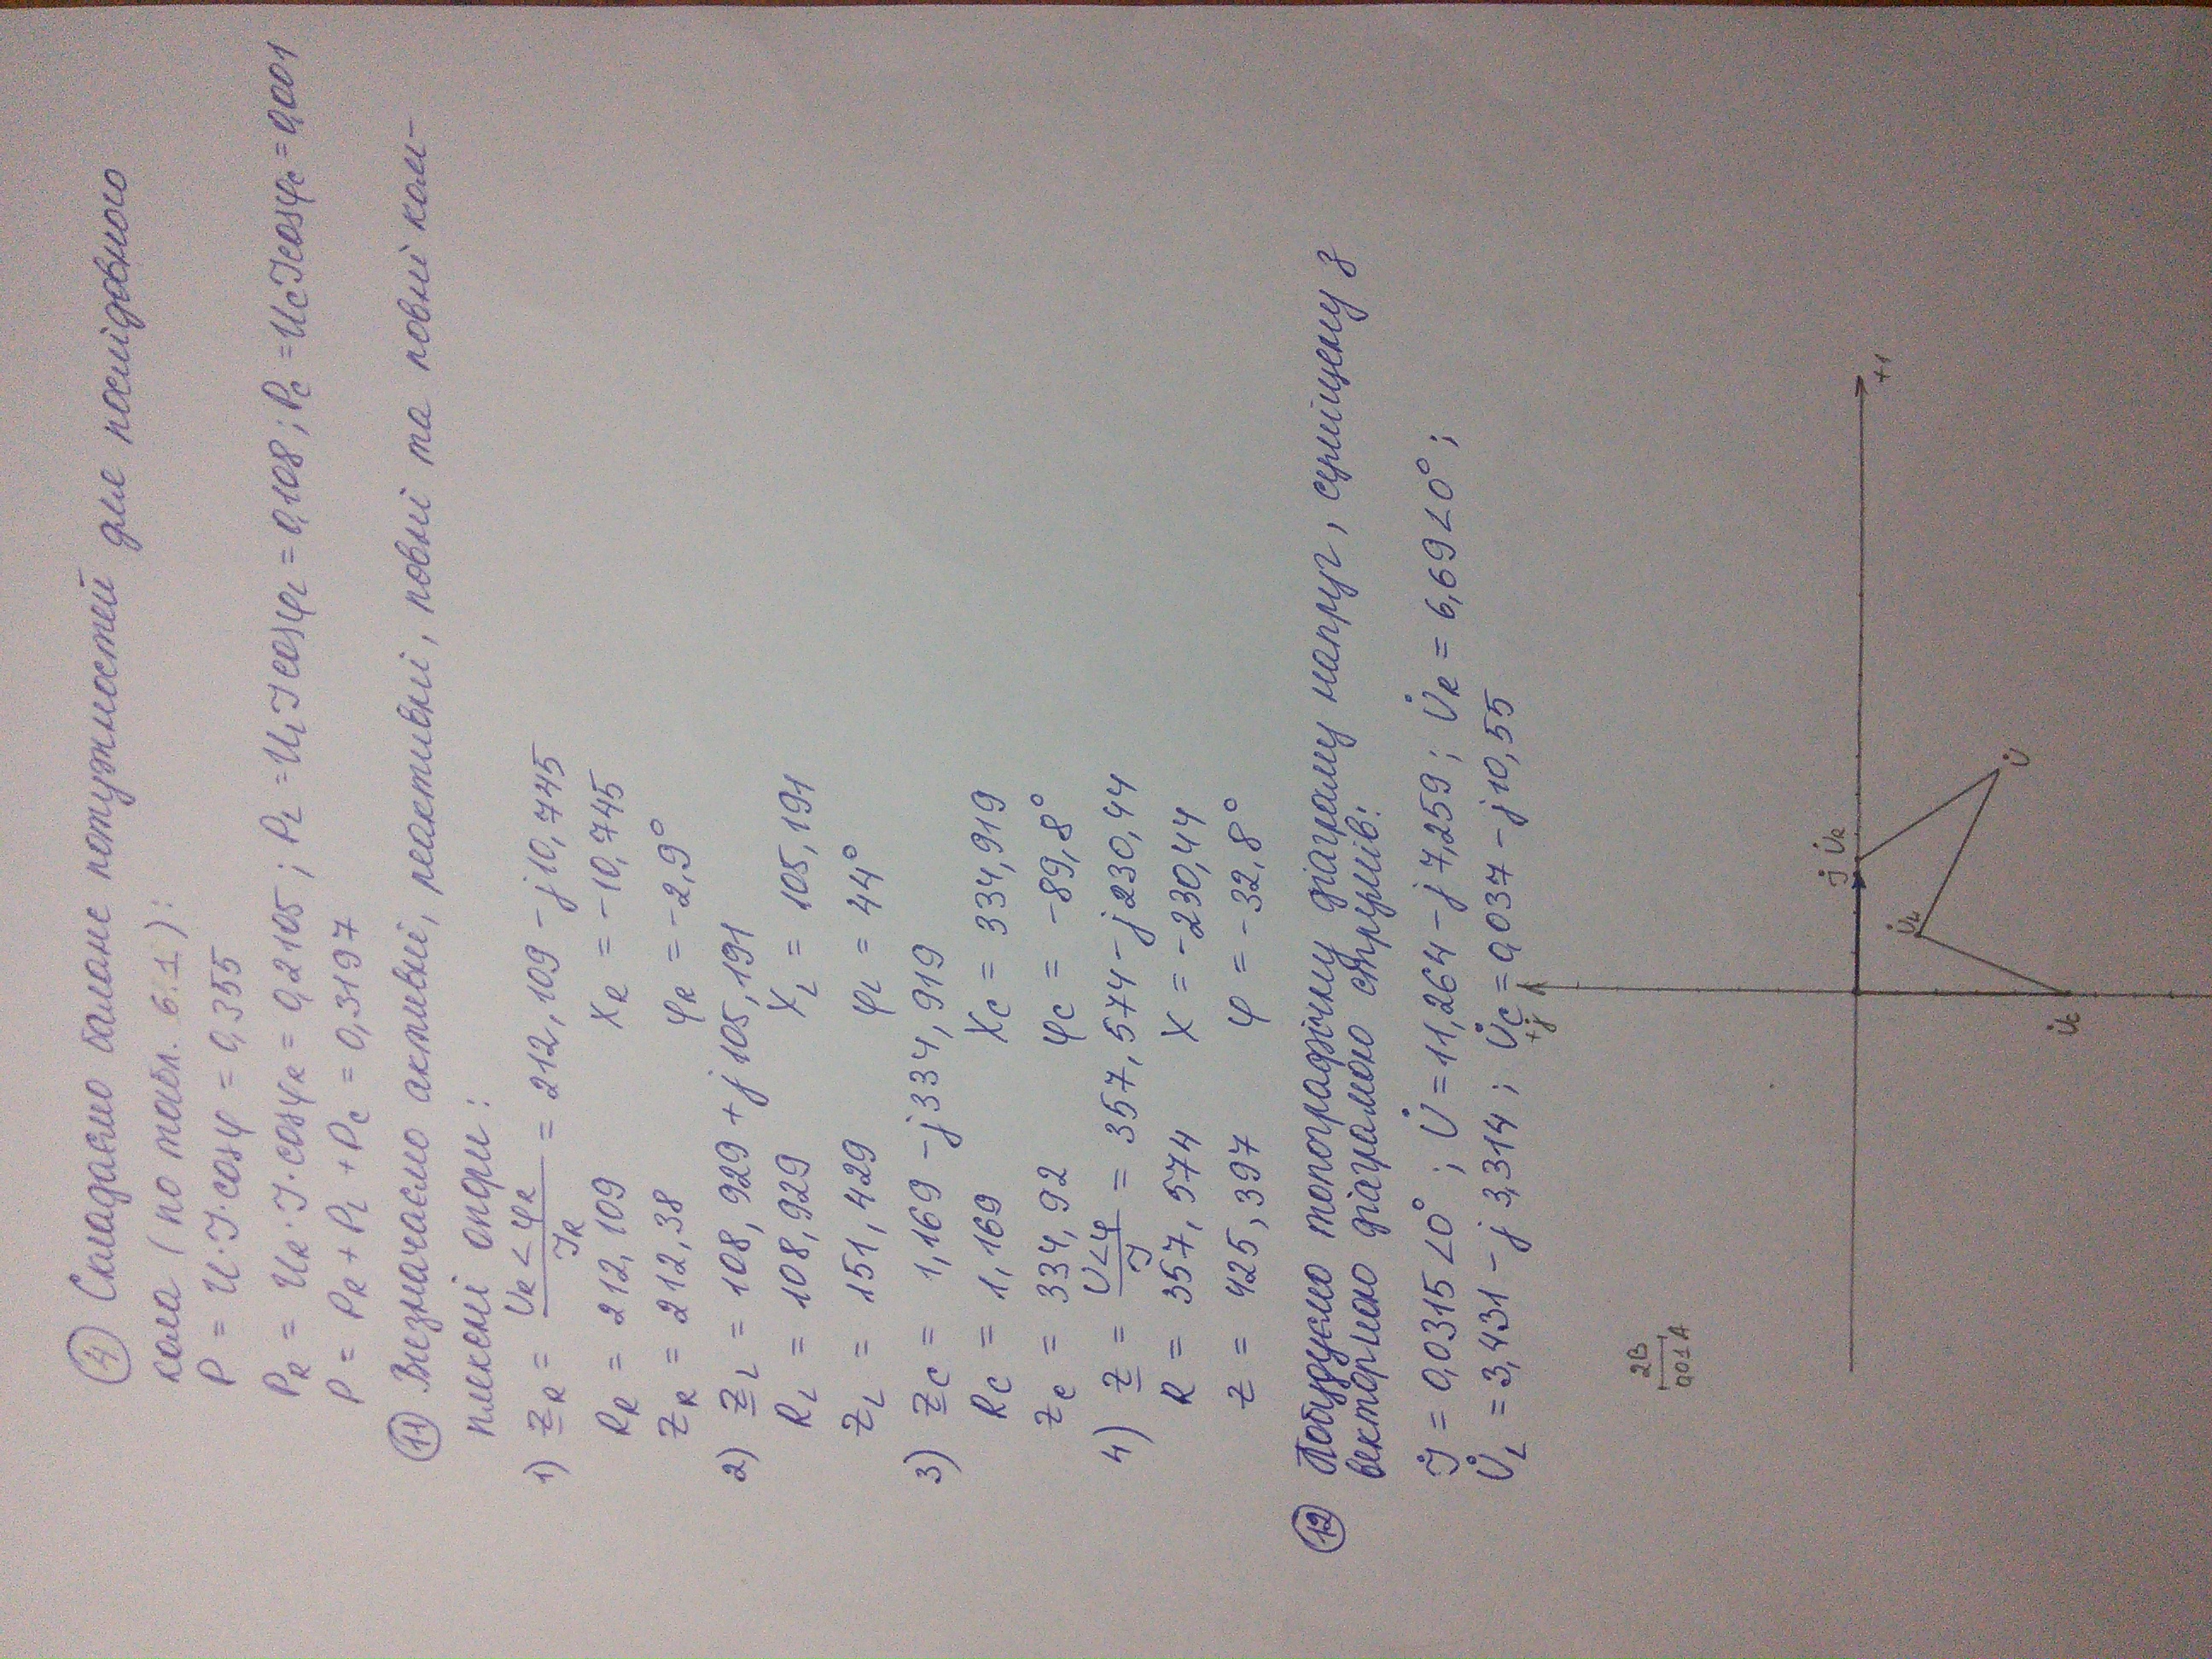 4) Складаємо баланс потужностей для послідовного
кола (по табл. 6.1):
P = U·I·cosφ = 0,355
P_R = U_R·I·cosφ_R = 0,2105; P_L = U_L I cosφ_L = 0,108; P_C = U_C I cosφ_C = 0,001
P = P_R + P_L + P_C = 0,3197
11) Визначаємо активні, реактивні, повні та повні ком-
плексні опори:
1) Z_R = U_R∠φ_R / I_R = 212,109 - j10,745
R_R = 212,109 X_R = -10,745
Z_R = 212,38 φ_R = -2,9°
2) Z_L = 108,929 + j105,191
R_L = 108,929 X_L = 105,191
Z_L = 151,429 φ_L = 44°
3) Z_C = 1,169 - j334,919
R_C = 1,169 X_C = 334,919
Z_C = 334,92 φ_C = -89,8°
4) Z = U∠φ / I = 357,574 - j230,44
R = 357,574 X = -230,44
Z = 425,397 φ = -32,8°
12) Побудуємо топографічну діаграму напруг, суміщену з
векторною діаграмою струмів:
İ = 0,0315∠0°; U̇ = 11,264 - j7,259; U̇_R = 6,69∠0°;
U̇_L = 3,431 - j3,314; U̇_C = 0,037 - j10,55
+j
2В
0,01А
İ U̇_R
+1
U̇_L
U̇
U̇_C